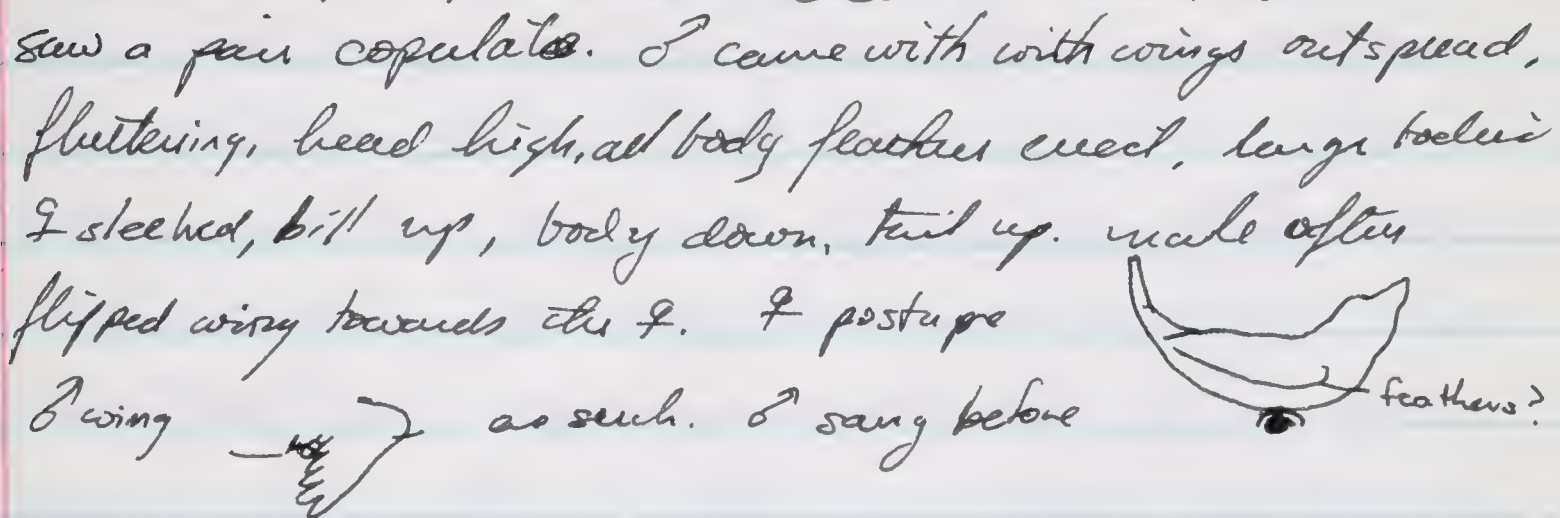 saw a pair copulate. ♂ came with with wings outspread,
fluttering, head high, all body feathers erect, large
♀ sleeked, bill up, body down, tail up. male often
flipped wing towards the ♀. ♀ posture
feathers?
♂ wing as such. ♂ sang before